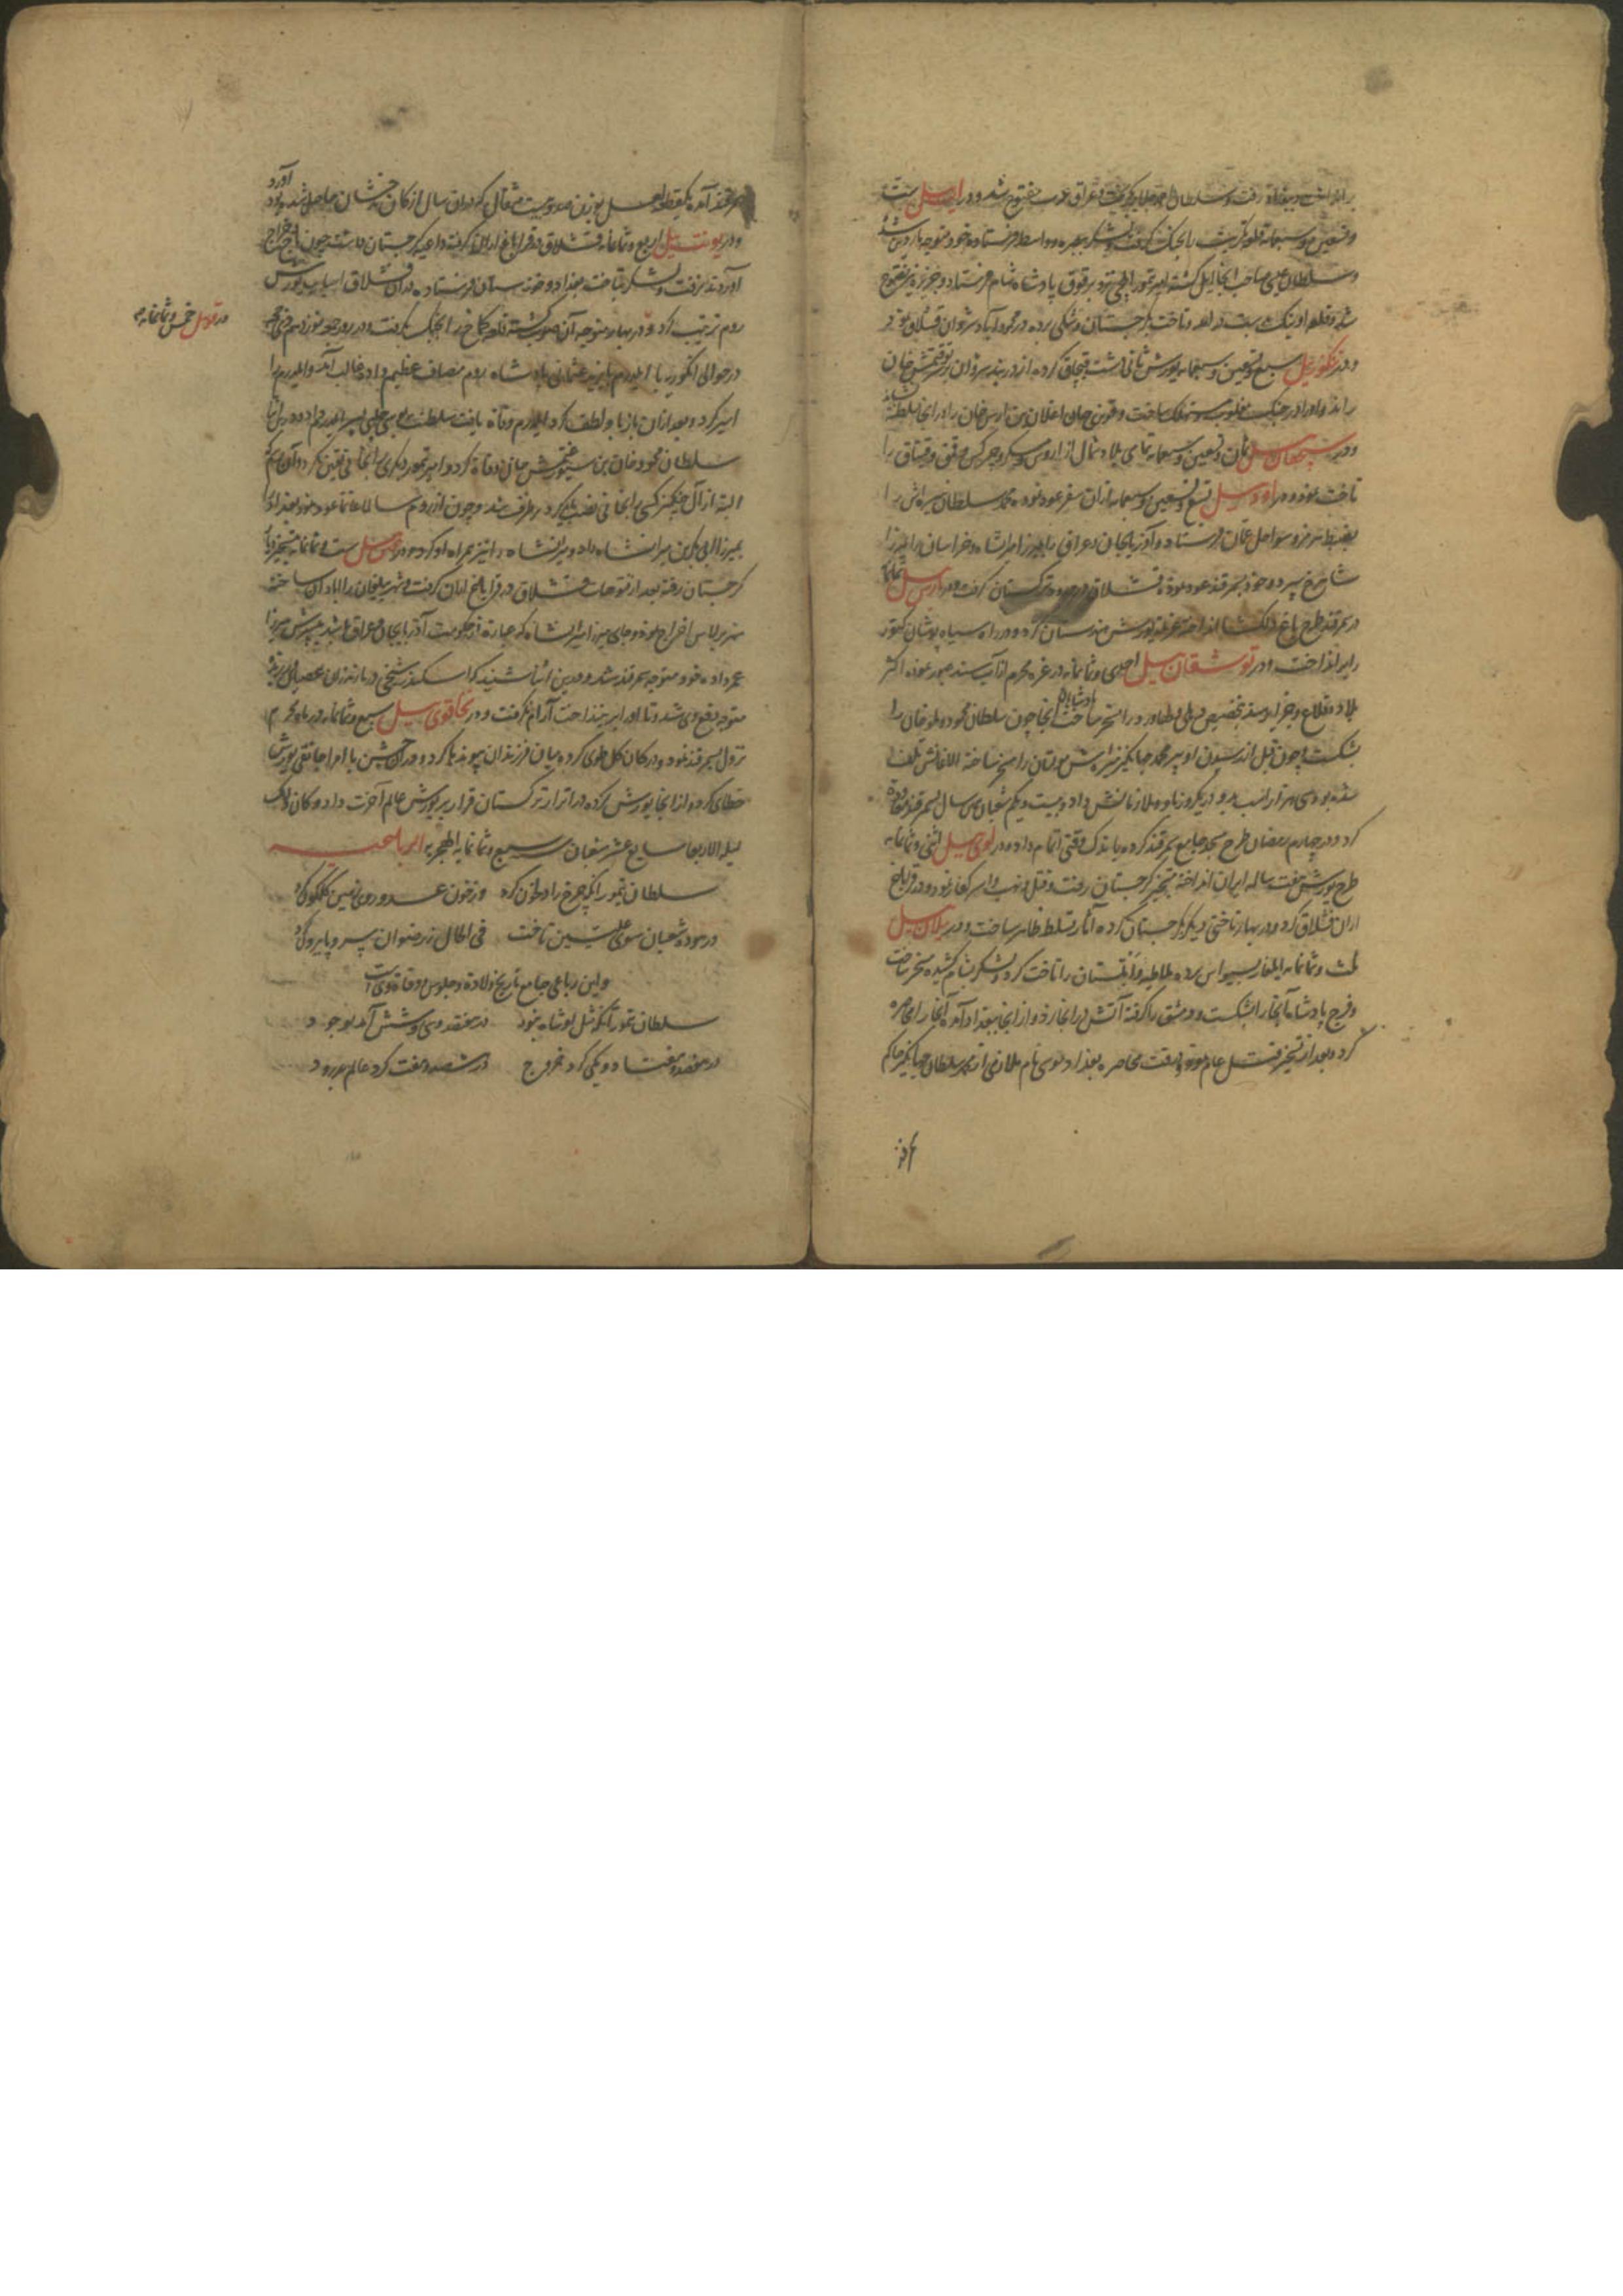 برانداخت و ببغداد رفت و سلطان احمد جلایر گریخت و عراق عرب مفتوح شد و در ایت ئیل ست
و تسعین و سبعمایه قلعه تکریت را بجنگ گرفت و لشکر ببصره و واسط فرستاده خود متوجه
و سلطان عیسی صاحب آنجا ایل گشته امیر تیمور ایلچی نزد برقوق پادشاه شام فرستاد و جزیره نیز مفتوح
شد و قلعه اونیک بدست در آمد و تاخت بگرجستان و شکی برده در محمود آباد شروان قشلاق
و در تنکوز ئیل سبع و تسعین و سبعمایه یورش ثانی دشت قبچاق کرده از دربند شروان بر سر توقتمش خان
راند و او را در جنگ مغلوب و ساخت و قویرجاق اغلان بن ارس خان را در آنجا بسلطنت نشاند
و در سیچقان ئیل ثمان و تسعین و سبعمایه تمامی بلاد شمال از اروس و چرکس را
تاخت نمود و در اود ئیل تسع و تسعین و سبعمایه از آن سفر عود نموده محمد سلطان میرزا را
بضبط هرمز و سواحل عمان فرستاد و آذربایجان و عراق را بمیرزا میرانشاه و خراسان را بمیرزا
شاهرخ سپرده خود بسمرقند عود نموده قشلاق در ترکستان گرفت و در بارس ئیل ثمانمایه
در سمرقند طرح باغ دلکشا انداخته عزیمت یورش هندستان کرده در راه سیاه پوشان کتور
را بر انداخت و در توشقان ئیل احدی و ثمانمایه در غره محرم از آب سند عبور نموده اکثر
بلاد و قلاع و جزایر هند بتخصیص دهلی و لهاور را مسخر ساخت و پادشاه آنجا چون سلطان محمود و ملو خان را
شکست و چون قبل از رسیدن او پیر محمد جهانگیر میرزا مولتان را مسخر ساخته الاغانش تلف
شده بود سی هزار اسب در یکروز باو و ملازمانش داد و بیست و یکم شعبان این سال بسمرقند معاودت
کرد و در چهارم رمضان طرح مسجد جامع سمرقند کرده باندک وقتی اتمام داد و در لوی ئیل اثنی و ثمانمایه
طرح یورش هفت ساله ایران انداخته بتسخیر گرجستان رفت و قتل و نهب و اسر کفار نمود و در قراباغ
اران قشلاق کرد و در بهار تاختی دیگر بگرجستان کرده آثار تسلط ظاهر ساخت و در ییلان ئیل
ثلث و ثمانمایه ایلغار بسیواس برده ملاطیه و ابلستان را تاخت کرد و لشکر بشام کشیده مسخر ساخت
و فرج پادشاه آنجا را بشکست و دمشق را گرفته آتش در آنجا زد و از آنجا ببغداد آمده آنجا را محاصره
کرد و بعد از تسخیر قتل عام نمود و در وقت محاصره بغداد موسی نام ملازمی از محمد سلطان جهانگیر حاکم
سمرقند آمده یک قطعه لعل بوزن صد و بیست مثقال که در آن سال از کان بدخشان حاصل شده بود آورد
و در یونت ئیل اربع و ثمانمایه قشلاق در قراباغ اران گرفت و داعیه گرجستان داشت چون باج و خراج
آوردند نرفت و لشکر بتاخت بغداد و خوزستان فرستاده در آن قشلاق اسباب یورش
روم ترتیب کرد و در بهار متوجه آن صوب گشته قلعه کماخ را بجنگ بگرفت و در روز جمعه نوزدهم ذی حجه
در قوی ئیل خمس و ثمانمایه
در حوالی انگوریه با ایلدرم بایزید عثمانی پادشاه روم مصاف عظیم داده غالب آمد و ایلدرم را
اسیر کرد و بعد از آن باز باو لطف کرد ایلدرم وفات یافت سلطنت بموسی چلبی پسر ایلدرم داد و درین اثنا
سلطان محمود خان بن سیورغتمش خان وفات کرد و امیر تیمور دیگری را بخانی تعیین نکرد و آن حکم
البته از آل چنگیز کسی را بخانی نصب باید کرد بر طرف شد و چون از روم سالما غانما عود نمود بغداد را
بمیرزا ابی بکر بن میرانشاه داد و میرانشاه را نیز همراه او کرد و در ئیل ست و ثمانمایه بتسخیر
گرجستان رفته بعد از فتوحات قشلاق در قراباغ اران گرفت و شهر بیلقان را آبادان ساخته
نهر برلاس اخراج نمود و جای میرزا میرانشاه که عبارت از حکومت آذربایجان و عراق باشد بپسرش میرزا
عمر داده خود متوجه سمرقند شد و درین اثنا شنید که اسکندر شیخی در مازندران عصیان ورزیده
متوجه دفع وی شد و تا او را بر نینداخت آرام نگرفت و در تخاقوی ئیل سبع و ثمانمایه در ماه محرم
نزول بسمرقند نمود و در کان گل طوی کرده میان فرزندان پیوندها کرد و در آن جشن با امرا جانقی یورش
خطای کرده از آنجا یورش کرده در اترار ترکستان قرار بر یورش عالم آخرت داد و کان ذلک
لیلة الاربعا سابع عشر شعبان سنه سبع و ثمانمایة الهجریه الرباعیه
سلطان تمور آنکه چرخ را دل خون کرد وز خون عدو روی زمین گلگون کرد
در هفده شعبان سوی علیین تاخت فی الحال ز رضوان سر و پا بیرون کرد
و این رباعی جامع تاریخ ولادت و جلوس و وفات وی است
سلطان تمور آنکه مثل او شاه نبود در هفتصد و سی و شش آمد بوجود
در هفتصد و هفتاد و یکی کرد خروج در هشتصد و هفت کرد عالم بدرود